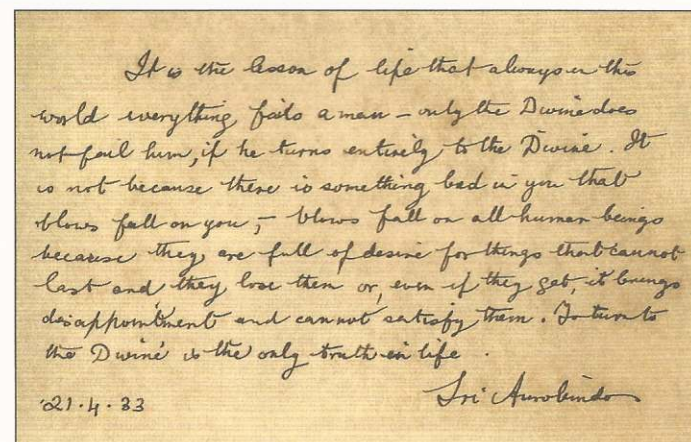 It is the lesson of life that always in this
world everything fails a man – only the Divine does
not fail him, if he turns entirely to the Divine. It
is not because there is something bad in you that
blows fall on you, – blows fall on all human beings
because they are full of desire for things that cannot
last and they lose them or, even if they get, it brings
disappointment and cannot satisfy them. To turn to
the Divine is the only truth in life.
21.4.33
Sri Aurobindo